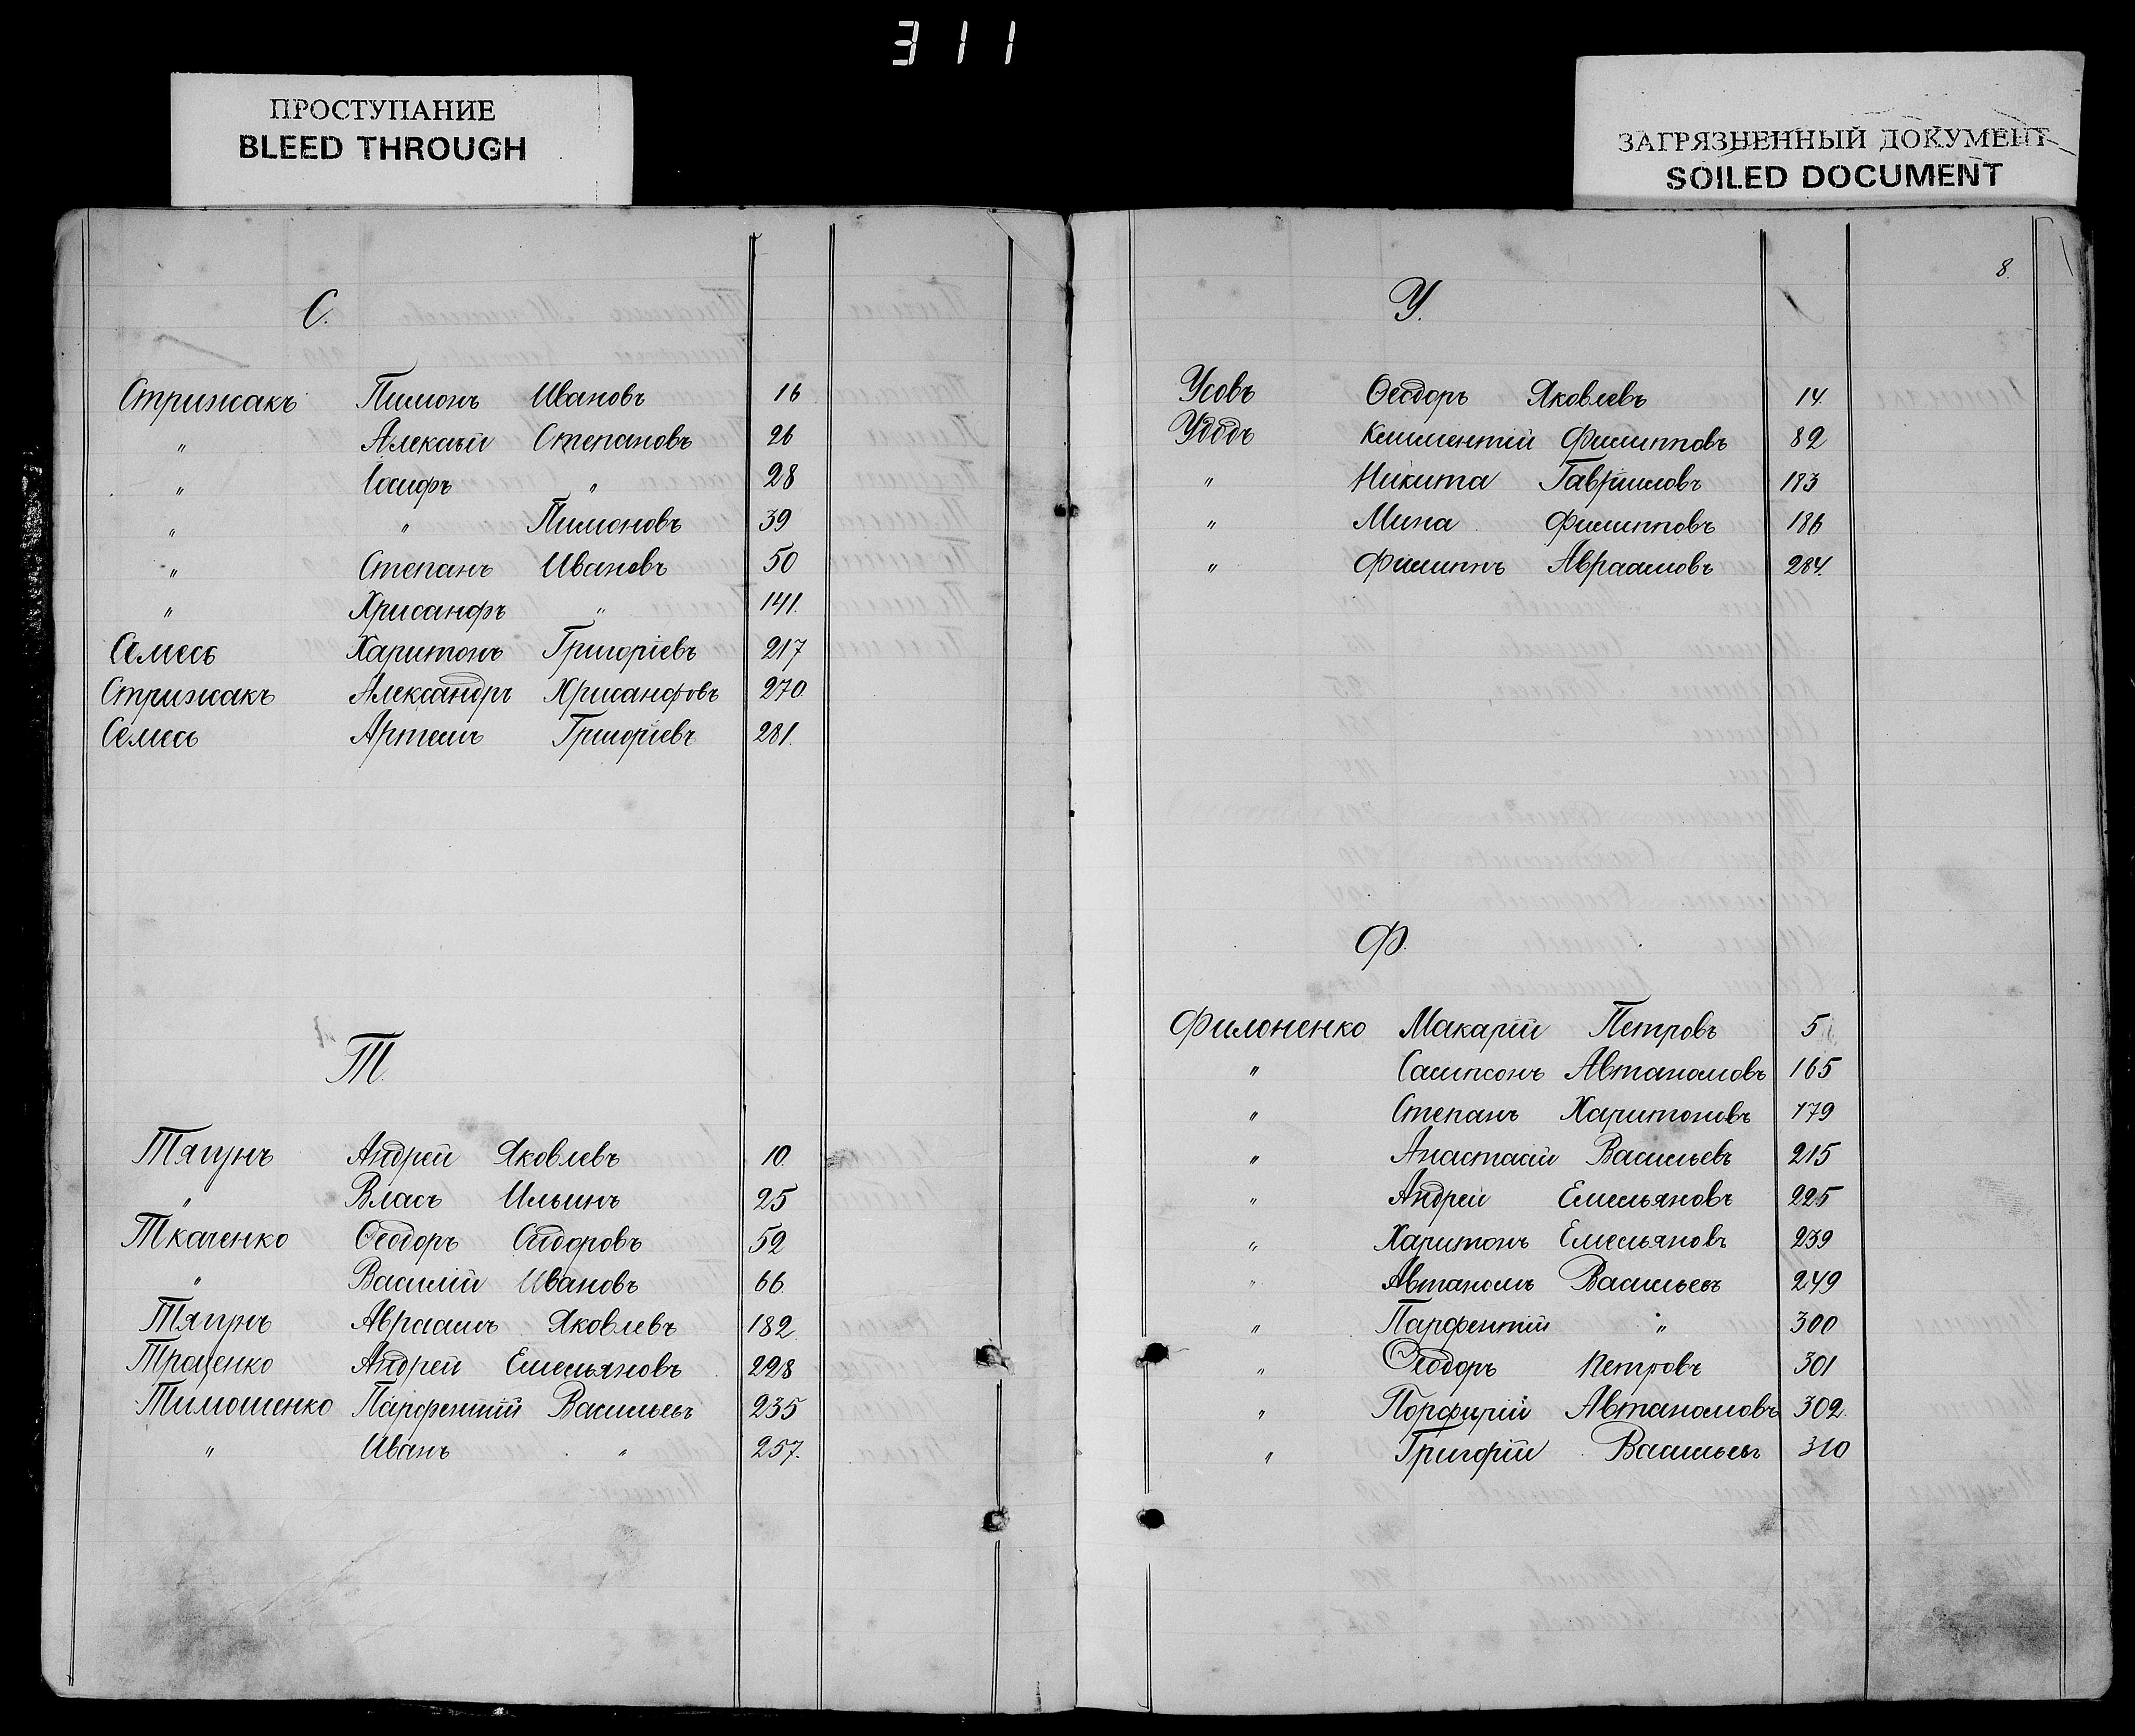 311
ПРОСТУПАНИЕ
BLEED THROUGH
ЗАГРЯЗНЕННЫЙ ДОКУМЕНТ
SOILED DOCUMENT
С.
Стрижакъ Пимонъ Ивановъ 16
" Алексѣй Степановъ 26
" Іосифъ " 28
" " Пимоновъ 39
" Степанъ Ивановъ 50
" Хрисанфъ " 141.
Семесь Харитонъ Григоріевъ 217
Стрижакъ Александръ Хрисанфовъ 270
Семесь Артемъ Григоріевъ 281.
Т.
Тягунъ Андрей Яковлевъ 10.
" Власъ Ильинъ 25
Ткаченко Ѳеодоръ Сидоровъ 52
" Василій Ивановъ 66.
Тягунъ Авраамъ Яковлевъ 182
Троценко Андрей Емельяновъ 228
Тимошенко Парфентій Васильевъ 235
" Иванъ " 257.
8.
У.
Усовъ Ѳеодоръ Яковлевъ 14.
Удодъ Климентій Филипповъ 82
" Никита Гавриловъ 183
" Мина Филипповъ 186
" Филиппъ Авраамовъ 284.
Ф.
Филоненко Макарій Петровъ 5
" Сампсонъ Автаномовъ 165
" Степанъ Харитоновъ 179
" Анастасій Васильевъ 215
" Андрей Емельяновъ 225
" Харитонъ Емельяновъ 239
" Автаномъ Васильевъ 249
" Парфентій " 300
" Ѳеодоръ Петровъ 301
" Порфирій Автаномовъ 302.
" Григорій Васильевъ 310